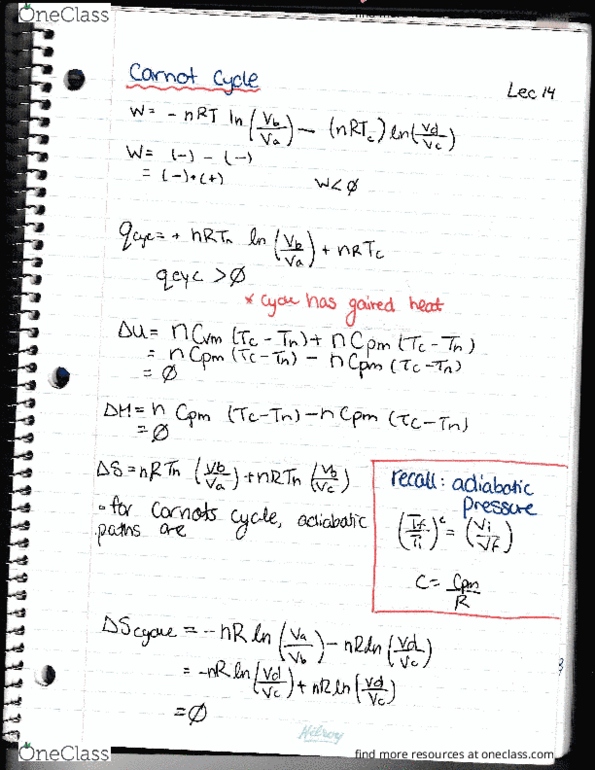 OneClass
find more resources at oneclass.com
Carnot Cycle
Lec 14
W = - nRT ln (Vb/Va) - (nRTc) ln (Vd/Vc)
W = (-) - (-)
= (-) + (+) W < Ø
qcyc = + nRTh ln (Vb/Va) + nRTc
qcyc > Ø
* cycle has gained heat
ΔU = n Cvm (Tc - Th) + n Cpm (Tc - Th)
= n Cpm (Tc - Th) - n Cpm (Tc - Th)
= Ø
ΔH = n Cpm (Tc - Th) - n Cpm (Tc - Th)
= Ø
ΔS = nRTh (Vb/Va) + nRTh (Vb/Vc)
- for Carnots cycle, adiabatic
paths are
recall: adiabatic
pressure
(Tf/Ti)^c = (Vi/Vf)
C = Cpm/R
ΔScycle = - nR ln (Va/Vb) - nR ln (Vd/Vc)
= - nR ln (Vd/Vc) + nR ln (Vd/Vc)
= Ø
Hilroy
OneClass
find more resources at oneclass.com